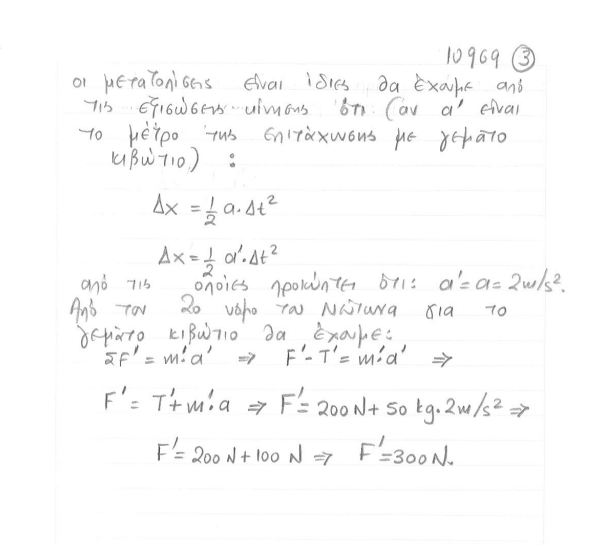 10969 ③
οι μετατοπίσεις είναι ίδιες θα έχουμε από
τις εξισώσεις κίνησης ότι (αν α' είναι
το μέτρο της επιτάχυνσης με γεμάτο
κιβώτιο) :
Δx = 1/2 α·Δt²
Δx = 1/2 α'·Δt²
από τις οποίες προκύπτει ότι: α' = α = 2m/s².
Από τον 2ο νόμο του Νεύτωνα για το
γεμάτο κιβώτιο θα έχουμε:
ΣF' = m'·α' ⇒ F' - T' = m'·α' ⇒
F' = T' + m'·α ⇒ F' = 200N + 50 kg·2m/s² ⇒
F' = 200 N + 100 N ⇒ F' = 300N.